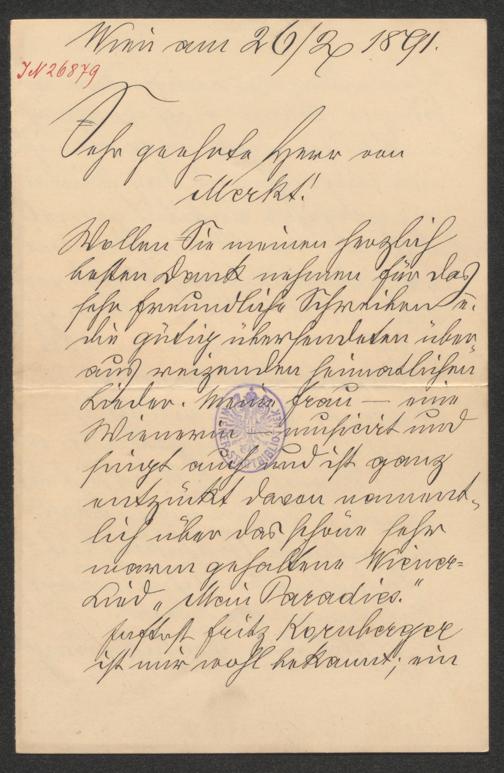 Wien am 26/2 1891.
IN 26879
Sehr geehrte Herr von
Merkt!
Wollen Sie meinen herzlich
besten Dank nehmen für das
sehr freundliche Schreiben u.
die gütig übersendeten über
aus reizenden heimatlichen
Lieder. Meine Frau — eine
Wienerin — musicirt und
singt auch und ist ganz
entzückt davon nament-
lich über das schöne sehr
warm gehaltene Wiener-
Lied „Mein Paradies."
Fritz Kornberger
ist mir wohl bekannt; ein